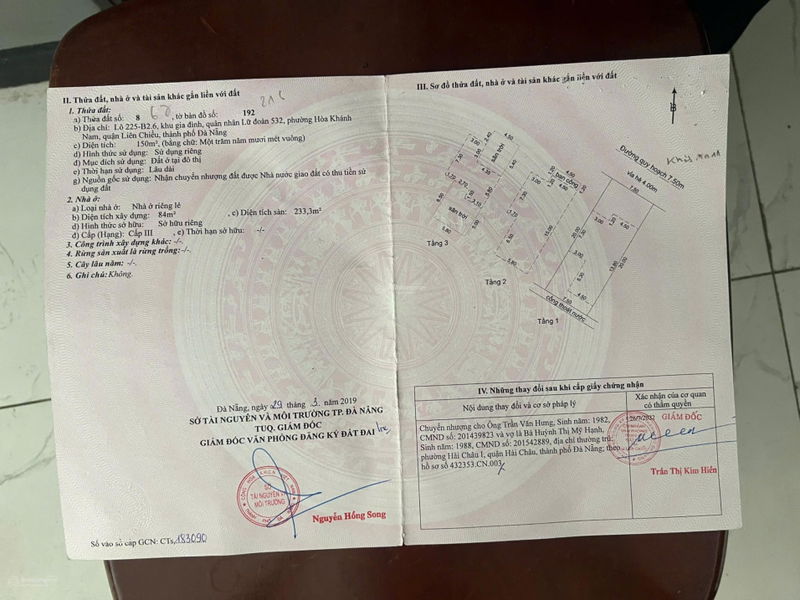 II. Thửa đất, nhà ở và tài sản khác gắn liền với đất
1. Thửa đất:
a) Thửa đất số: 8 , tờ bản đồ số: 192
b) Địa chỉ: Lô 225-B2.6, khu gia đình, quân nhân Lữ đoàn 532, phường Hòa Khánh
Nam, quận Liên Chiểu, thành phố Đà Nẵng
c) Diện tích: 150m², (bằng chữ: Một trăm năm mươi mét vuông)
d) Hình thức sử dụng: Sử dụng riêng
đ) Mục đích sử dụng: Đất ở tại đô thị
e) Thời hạn sử dụng: Lâu dài
g) Nguồn gốc sử dụng: Nhận chuyển nhượng đất được Nhà nước giao đất có thu tiền sử
dụng đất
2. Nhà ở:
a) Loại nhà ở: Nhà ở riêng lẻ
b) Diện tích xây dựng: 84m² , c) Diện tích sàn: 233,3m²
d) Hình thức sở hữu: Sở hữu riêng
đ) Cấp (Hạng): Cấp III , e) Thời hạn sở hữu: -/-
3. Công trình xây dựng khác: -/-
4. Rừng sản xuất là rừng trồng: -/-
5. Cây lâu năm: -/-
6. Ghi chú: Không.
Đà Nẵng, ngày 29 tháng 3 năm 2019
SỞ TÀI NGUYÊN VÀ MÔI TRƯỜNG TP. ĐÀ NẴNG
TUQ. GIÁM ĐỐC
GIÁM ĐỐC VĂN PHÒNG ĐĂNG KÝ ĐẤT ĐAI
SỞ
TÀI NGUYÊN VÀ
MÔI TRƯỜNG
Nguyễn Hồng Song
Số vào sổ cấp GCN: CTs, 183090
III. Sơ đồ thửa đất, nhà ở và tài sản khác gắn liền với đất
B
Đường quy hoạch 7.50m
vỉa hè 4.00m
ban công
sân trời
sân trời
Tầng 3
Tầng 2
Tầng 1
cống thoát nước
IV. Những thay đổi sau khi cấp giấy chứng nhận
Nội dung thay đổi và cơ sở pháp lý
Xác nhận của cơ quan
có thẩm quyền
Chuyển nhượng cho Ông Trần Văn Hưng, Sinh năm: 1982,
CMND số: 201439823 và vợ là Bà Huỳnh Thị Mỹ Hạnh,
Sinh năm: 1988, CMND số: 201542889, địa chỉ thường trú:
phường Hải Châu I, quận Hải Châu, thành phố Đà Nẵng; theo
hồ sơ số 432353.CN.003
GIÁM ĐỐC
Trần Thị Kim Hiền